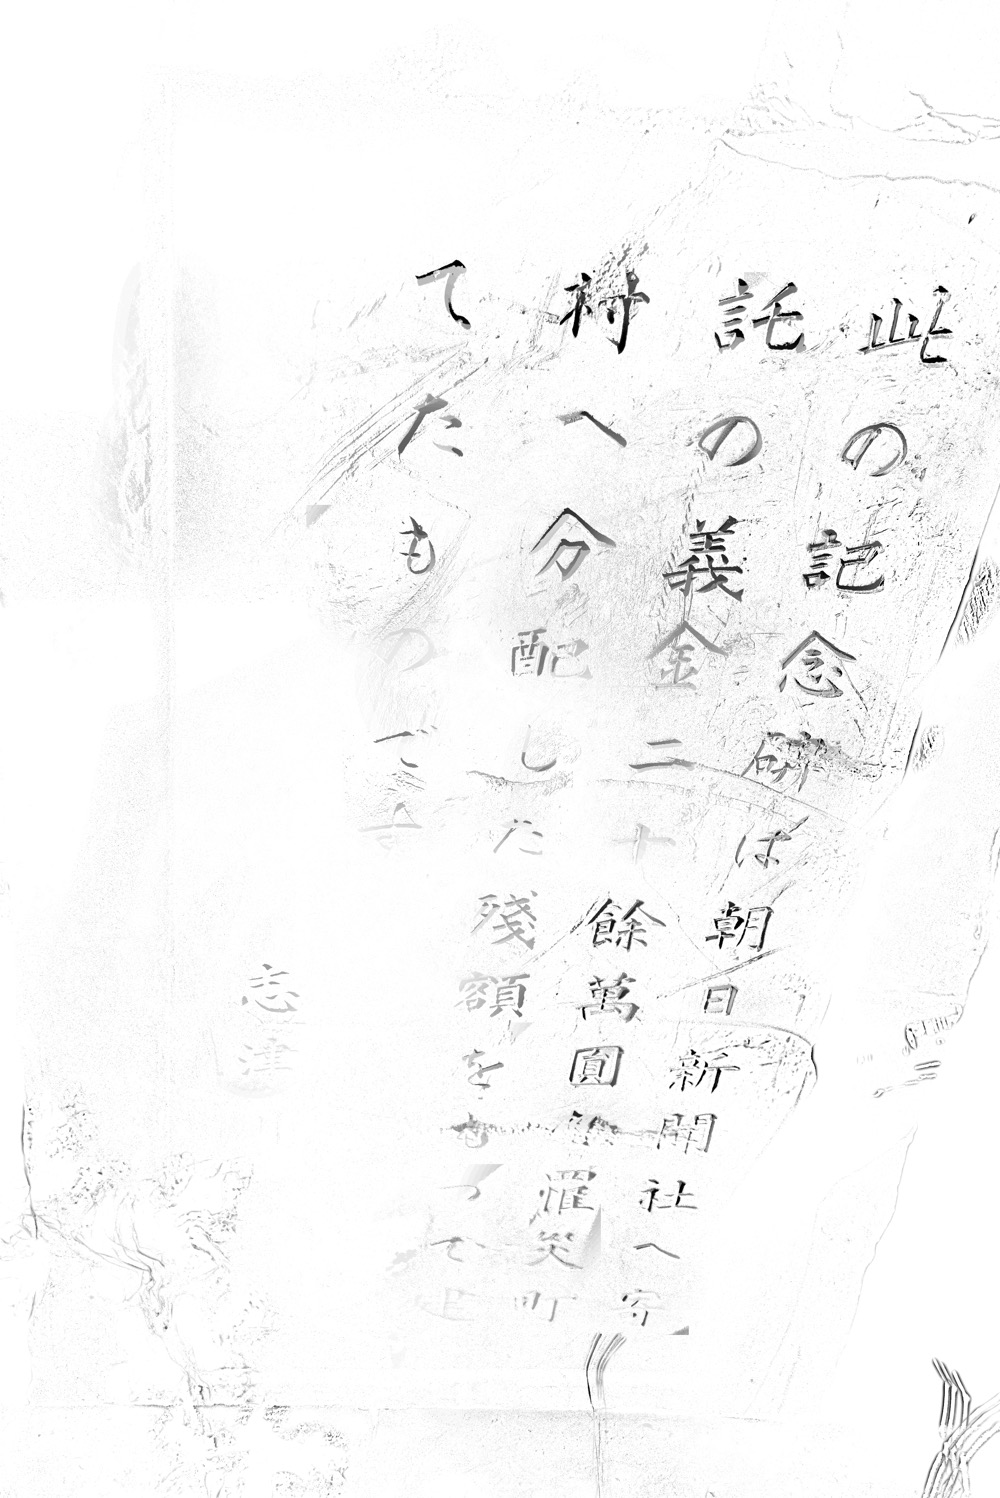 此の記念碑は朝日新聞社へ寄
託の義金二十餘萬圓を罹災町
村へ分配した殘額をもつて建
てたものです
志津川